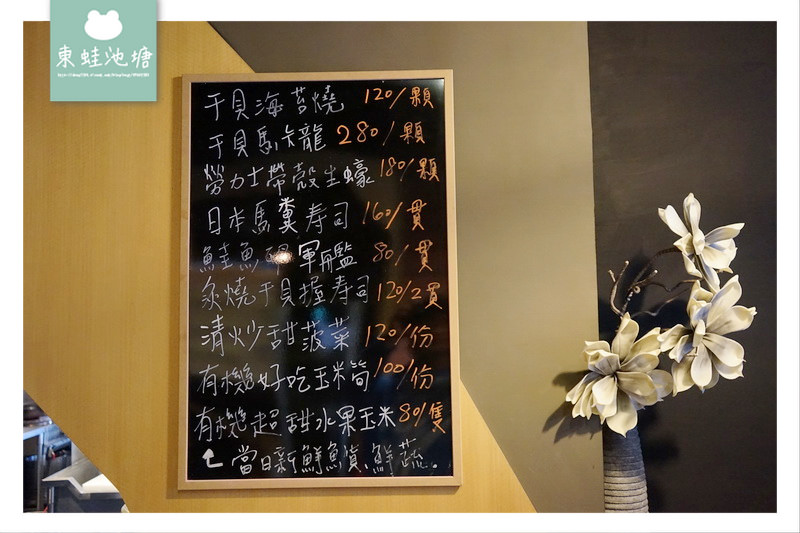 東蛙池塘
干貝海苔燒 120/顆
干貝馬卡龍 280/顆
勞力士帶殼生蠔 180/顆
日本馬糞寿司 160/貫
鮭魚卵軍艦 80/貫
炙燒干貝握寿司 120/2貫
清炒甜菠菜 120/份
有機好吃玉米筍 100/份
有機超甜水果玉米 80/隻
當日新鮮魚貨、鮮蔬。